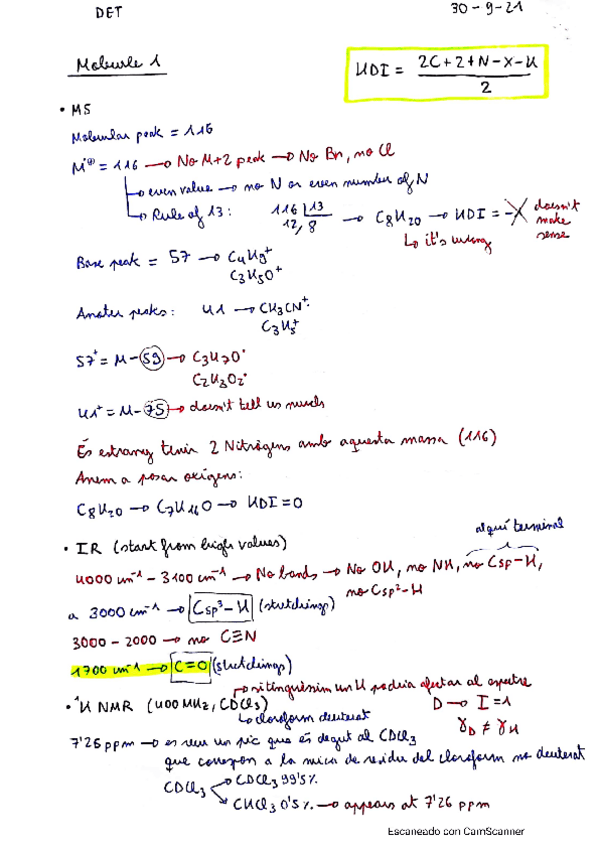 DET
30-9-21
Molecule 1
UDI = (2C+2+N-X-H)/2
• MS
Molecular peak = 116
M⁺ = 116 → No M+2 peak → No Br, no Cl
→ even value → no N or even number of N
→ Rule of 13: 116 | 13 → C8H20 → UDI = -X doesn't make sense
12, 8 ↳ it's wrong
Base peak = 57 → C4H9⁺
C3H5O⁺
Another peaks: 41 → CH3CN⁺·
C3H5⁺
57⁺ = M - 59 → C3H7O·
C2H3O2·
41⁺ = M - 75 → doesn't tell us much
És estrany tenir 2 Nitrògens amb aquesta massa (116)
Anem a posar oxígens:
C8H20 → C7H16O → UDI = 0
alquí terminal
• IR (start from high values)
4000 cm⁻¹ - 3100 cm⁻¹ → No bands → No OH, no NH, no Csp-H,
no Csp²-H
a 3000 cm⁻¹ → Csp³-H (stretchings)
3000 - 2000 → no C≡N
1700 cm⁻¹ → C=O (stretchings)
→ si tinguéssim un H podria afectar al espectre
• ¹H NMR (400 MHz, CDCl3) D → I=1
↳ cloroform deuterat γD ≠ γH
7'26 ppm → es veu un pic que és degut al CDCl3
que correspon a la mica de residu del cloroform no deuterat
CDCl3 → CDCl3 99'5%
→ CHCl3 0'5% → appears at 7'26 ppm
Escaneado con CamScanner